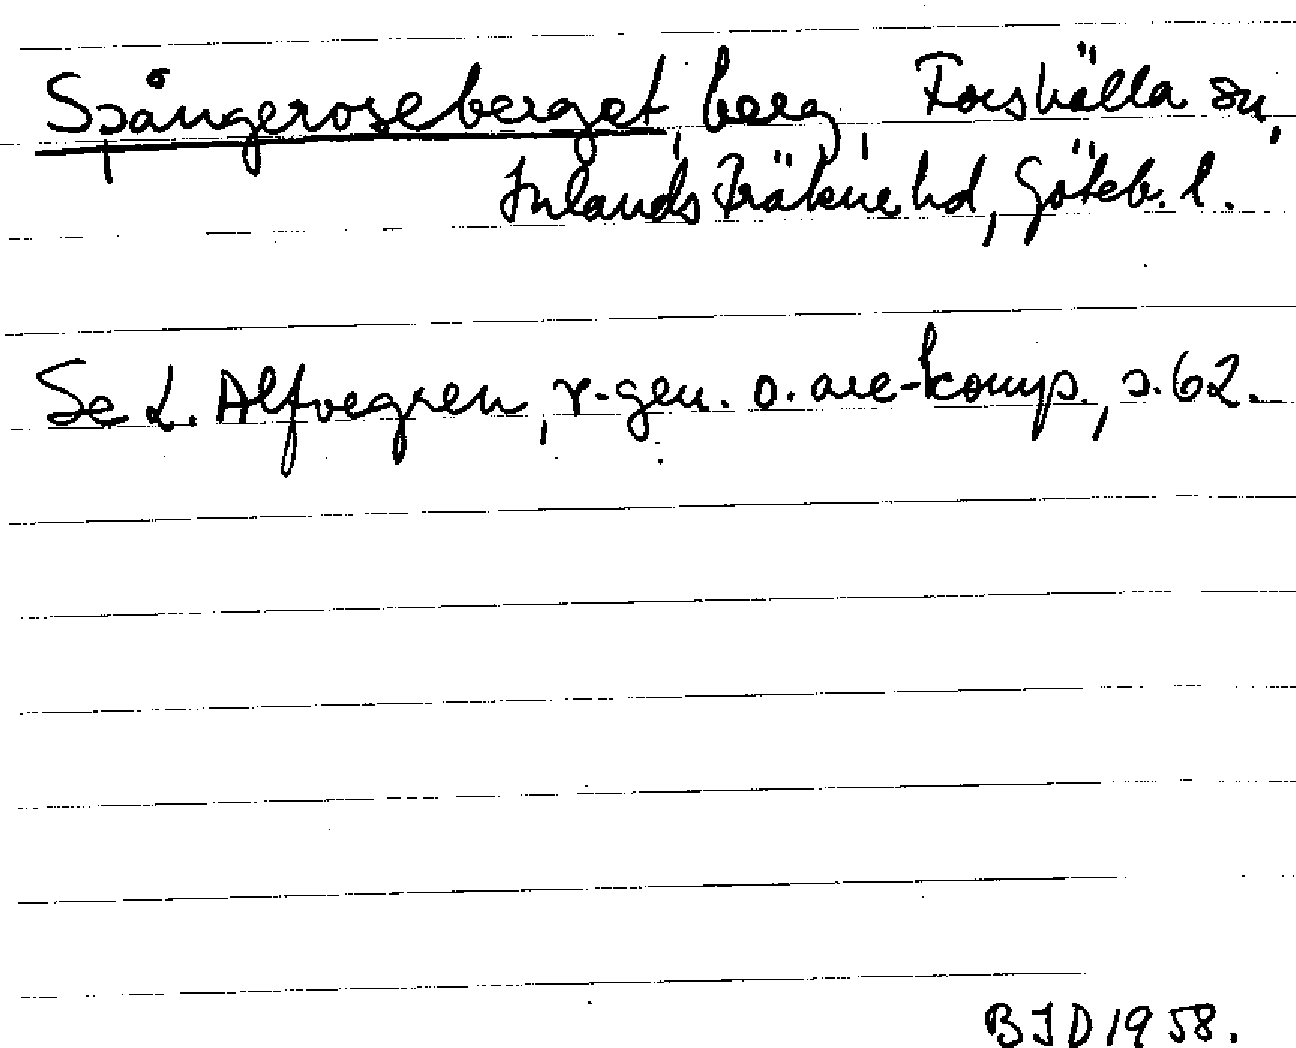 Spångeroseberget, berg, Forshälla sn,
Inlands Fräkne hd, Göteb. l.
Se L. Alfvegren, r-gen. o. are-komp., s. 62.
BJD 1958.